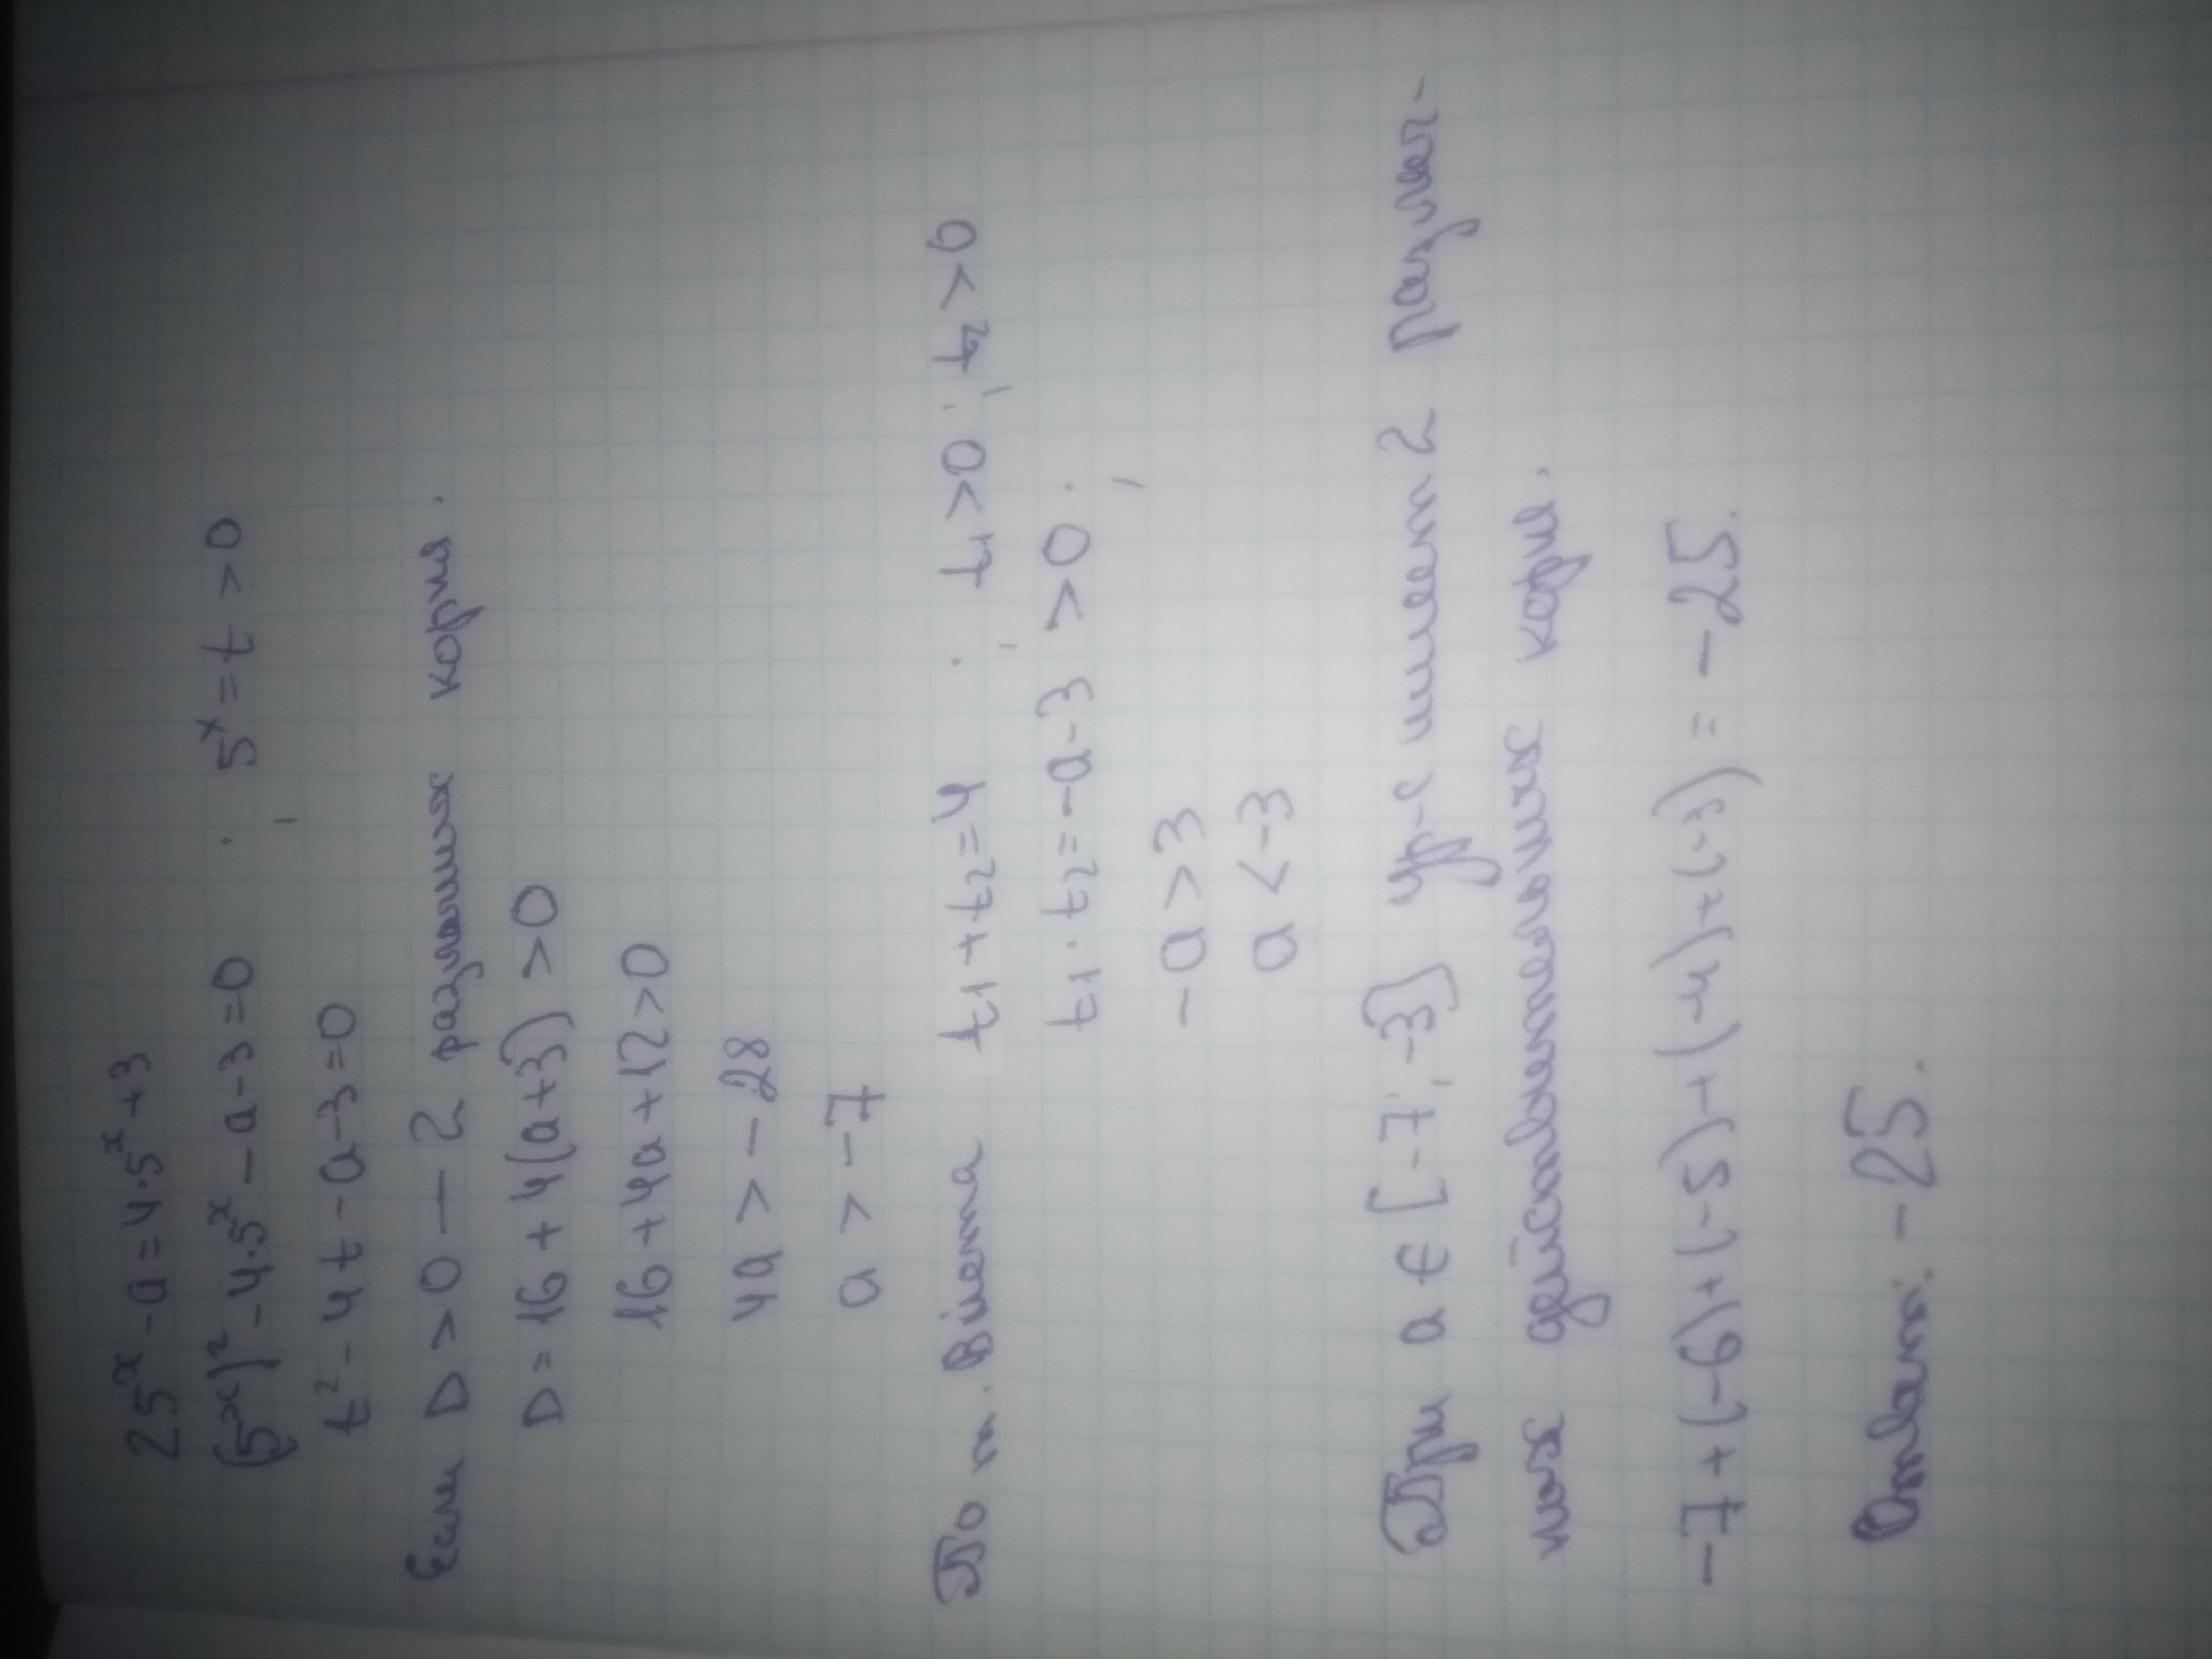 25ˣ - a = 4·5ˣ + 3
(5ˣ)² - 4·5ˣ - a - 3 = 0 ; 5ˣ = t > 0
t² - 4t - a - 3 = 0
Если D > 0 — 2 различных корня.
D = 16 + 4(a+3) > 0
16 + 4a + 12 > 0
4a > -28
a > -7
По т. Виета t₁ + t₂ = 4 ; t₁ > 0 ; t₂ > 0
t₁ · t₂ = -a - 3 > 0 ;
-a > 3
a < -3
При a ∈ [-7; -3] ур-е имеет 2 различ-
ных действительных корня.
-7 + (-6) + (-5) + (-4) + (-3) = -25.
Ответ: -25.